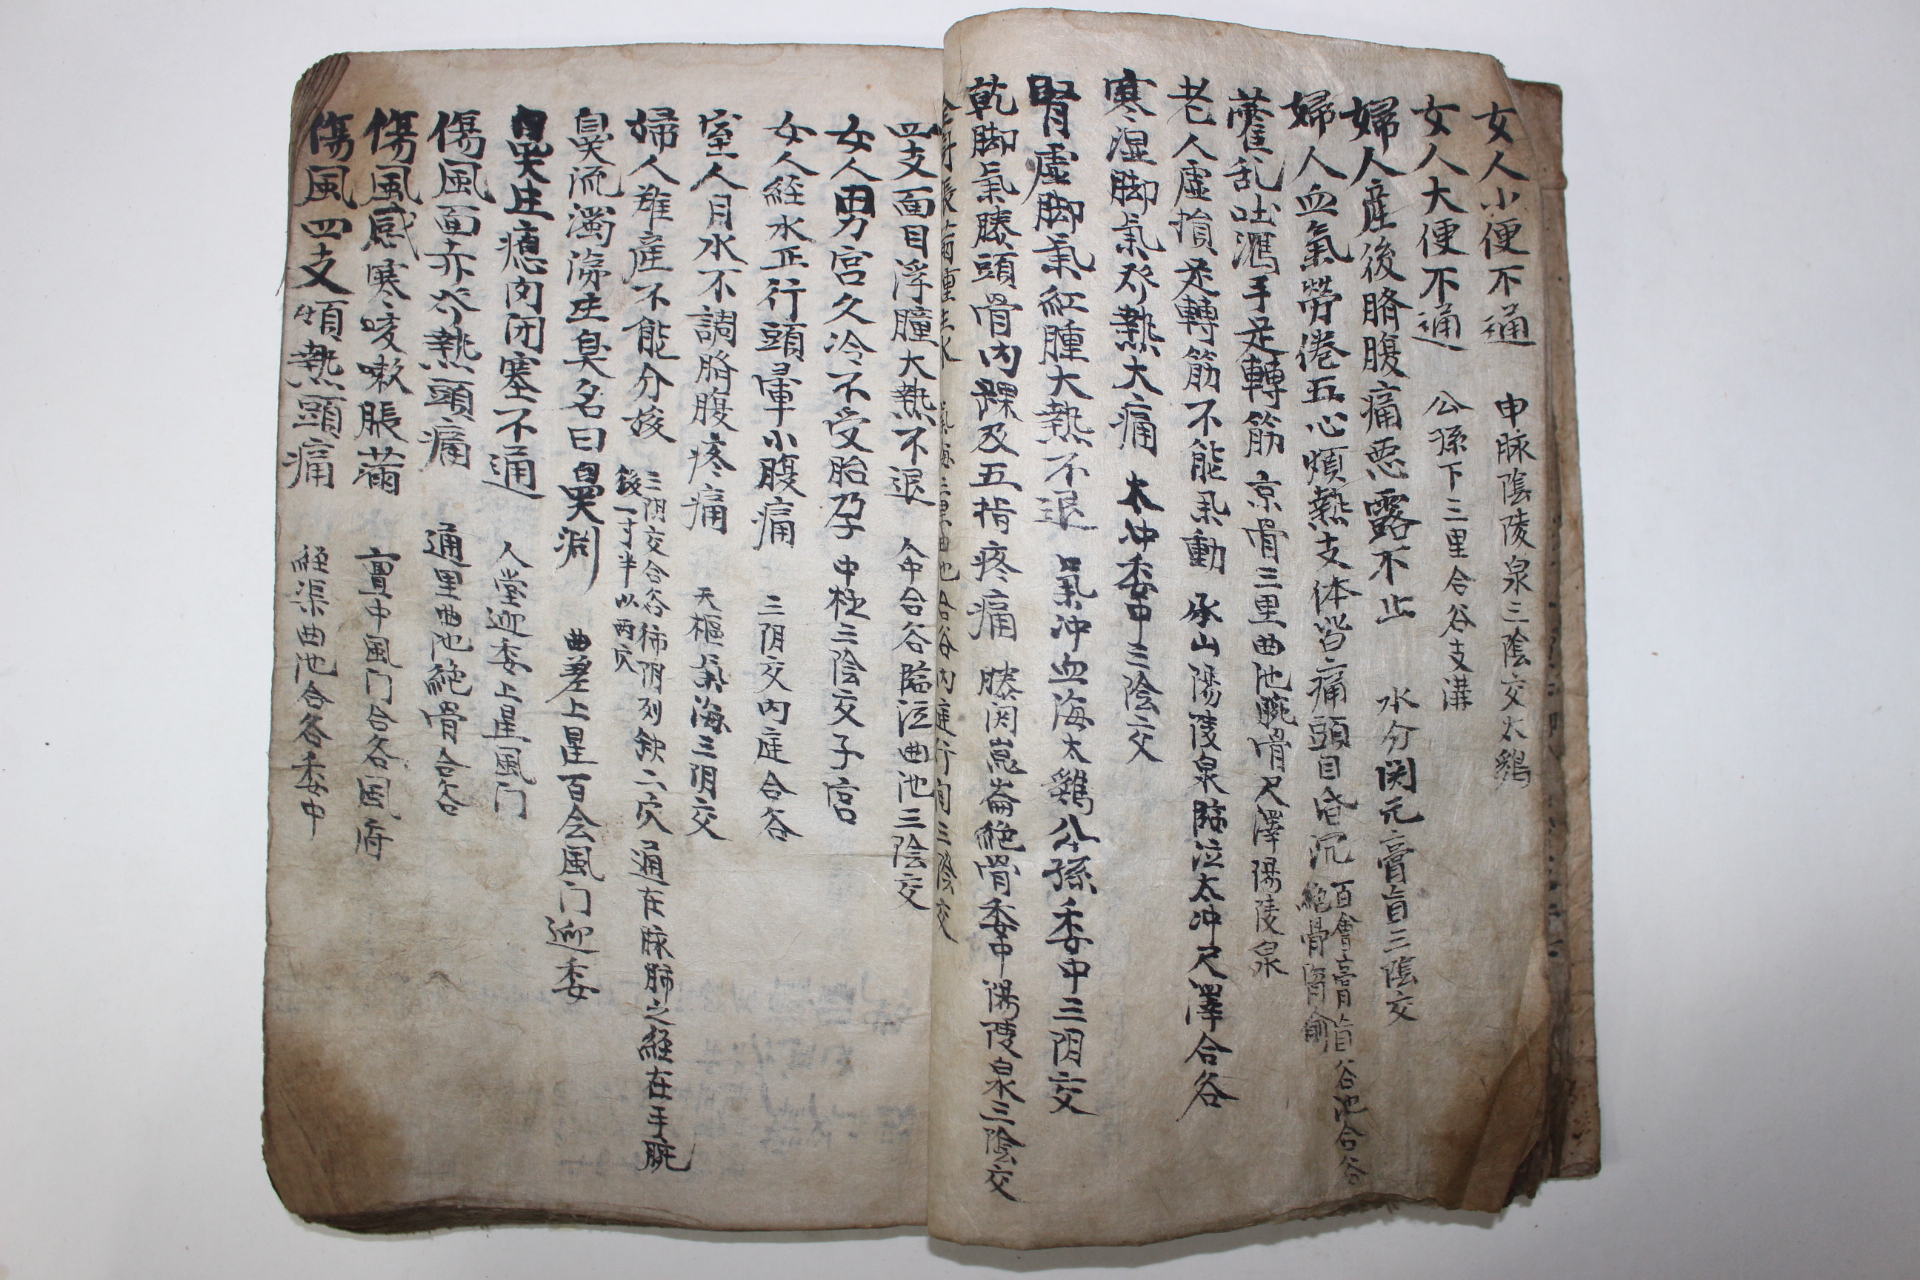 女人小便不通 申脉陰陵泉三陰交太鷄
女人大便不通 公孫下三里合谷支溝
婦人産後臍腹痛惡露不止 水分関元膏肓三陰交
婦人血氣勞倦五心煩熱支体皆痛頭目昏沉 百會膏肓谷池合谷
絶骨腎俞
藿乱吐瀉手足轉筋 京骨三里曲池腕骨尺澤陽陵泉
老人虛損足轉筋不能用動 承山陽陵泉臨泣太冲尺澤合谷
寒湿脚氣發熱大痛 太冲委中三陰交
腎虛脚氣紅腫大熱不退 氣冲血海太鷄公孫委中三阴交
乾脚氣膝頭骨内踝及五指疼痛 膝関崑崙絶骨委中陽陵泉三陰交
曲池合谷内庭行间三陰交
四支面目浮腫大熱不退 人中合谷臨泣曲池三陰交
女人男宮久冷不受胎孕 中極三陰交子宮
女人経水正行頭暈小腹痛 三阴交内庭合谷
室人月水不調臍腹疼痛 天樞氣海三阴交
婦人难産不能分娩 三阴交合谷 阴列缺二穴通在脉肺之経在手腕
後一寸半以两穴
臭流濁涕生臭名曰鼻渊 曲差上星百会風门迎委
鼻生瘜肉闭塞不通 人堂迎委上星風门
傷風面赤發熱頭痛 通里曲池絶骨合谷
傷風感寒咳嗽脹滿 亶中風门合谷風府
傷風四支煩熱頭痛 経渠曲池合谷委中